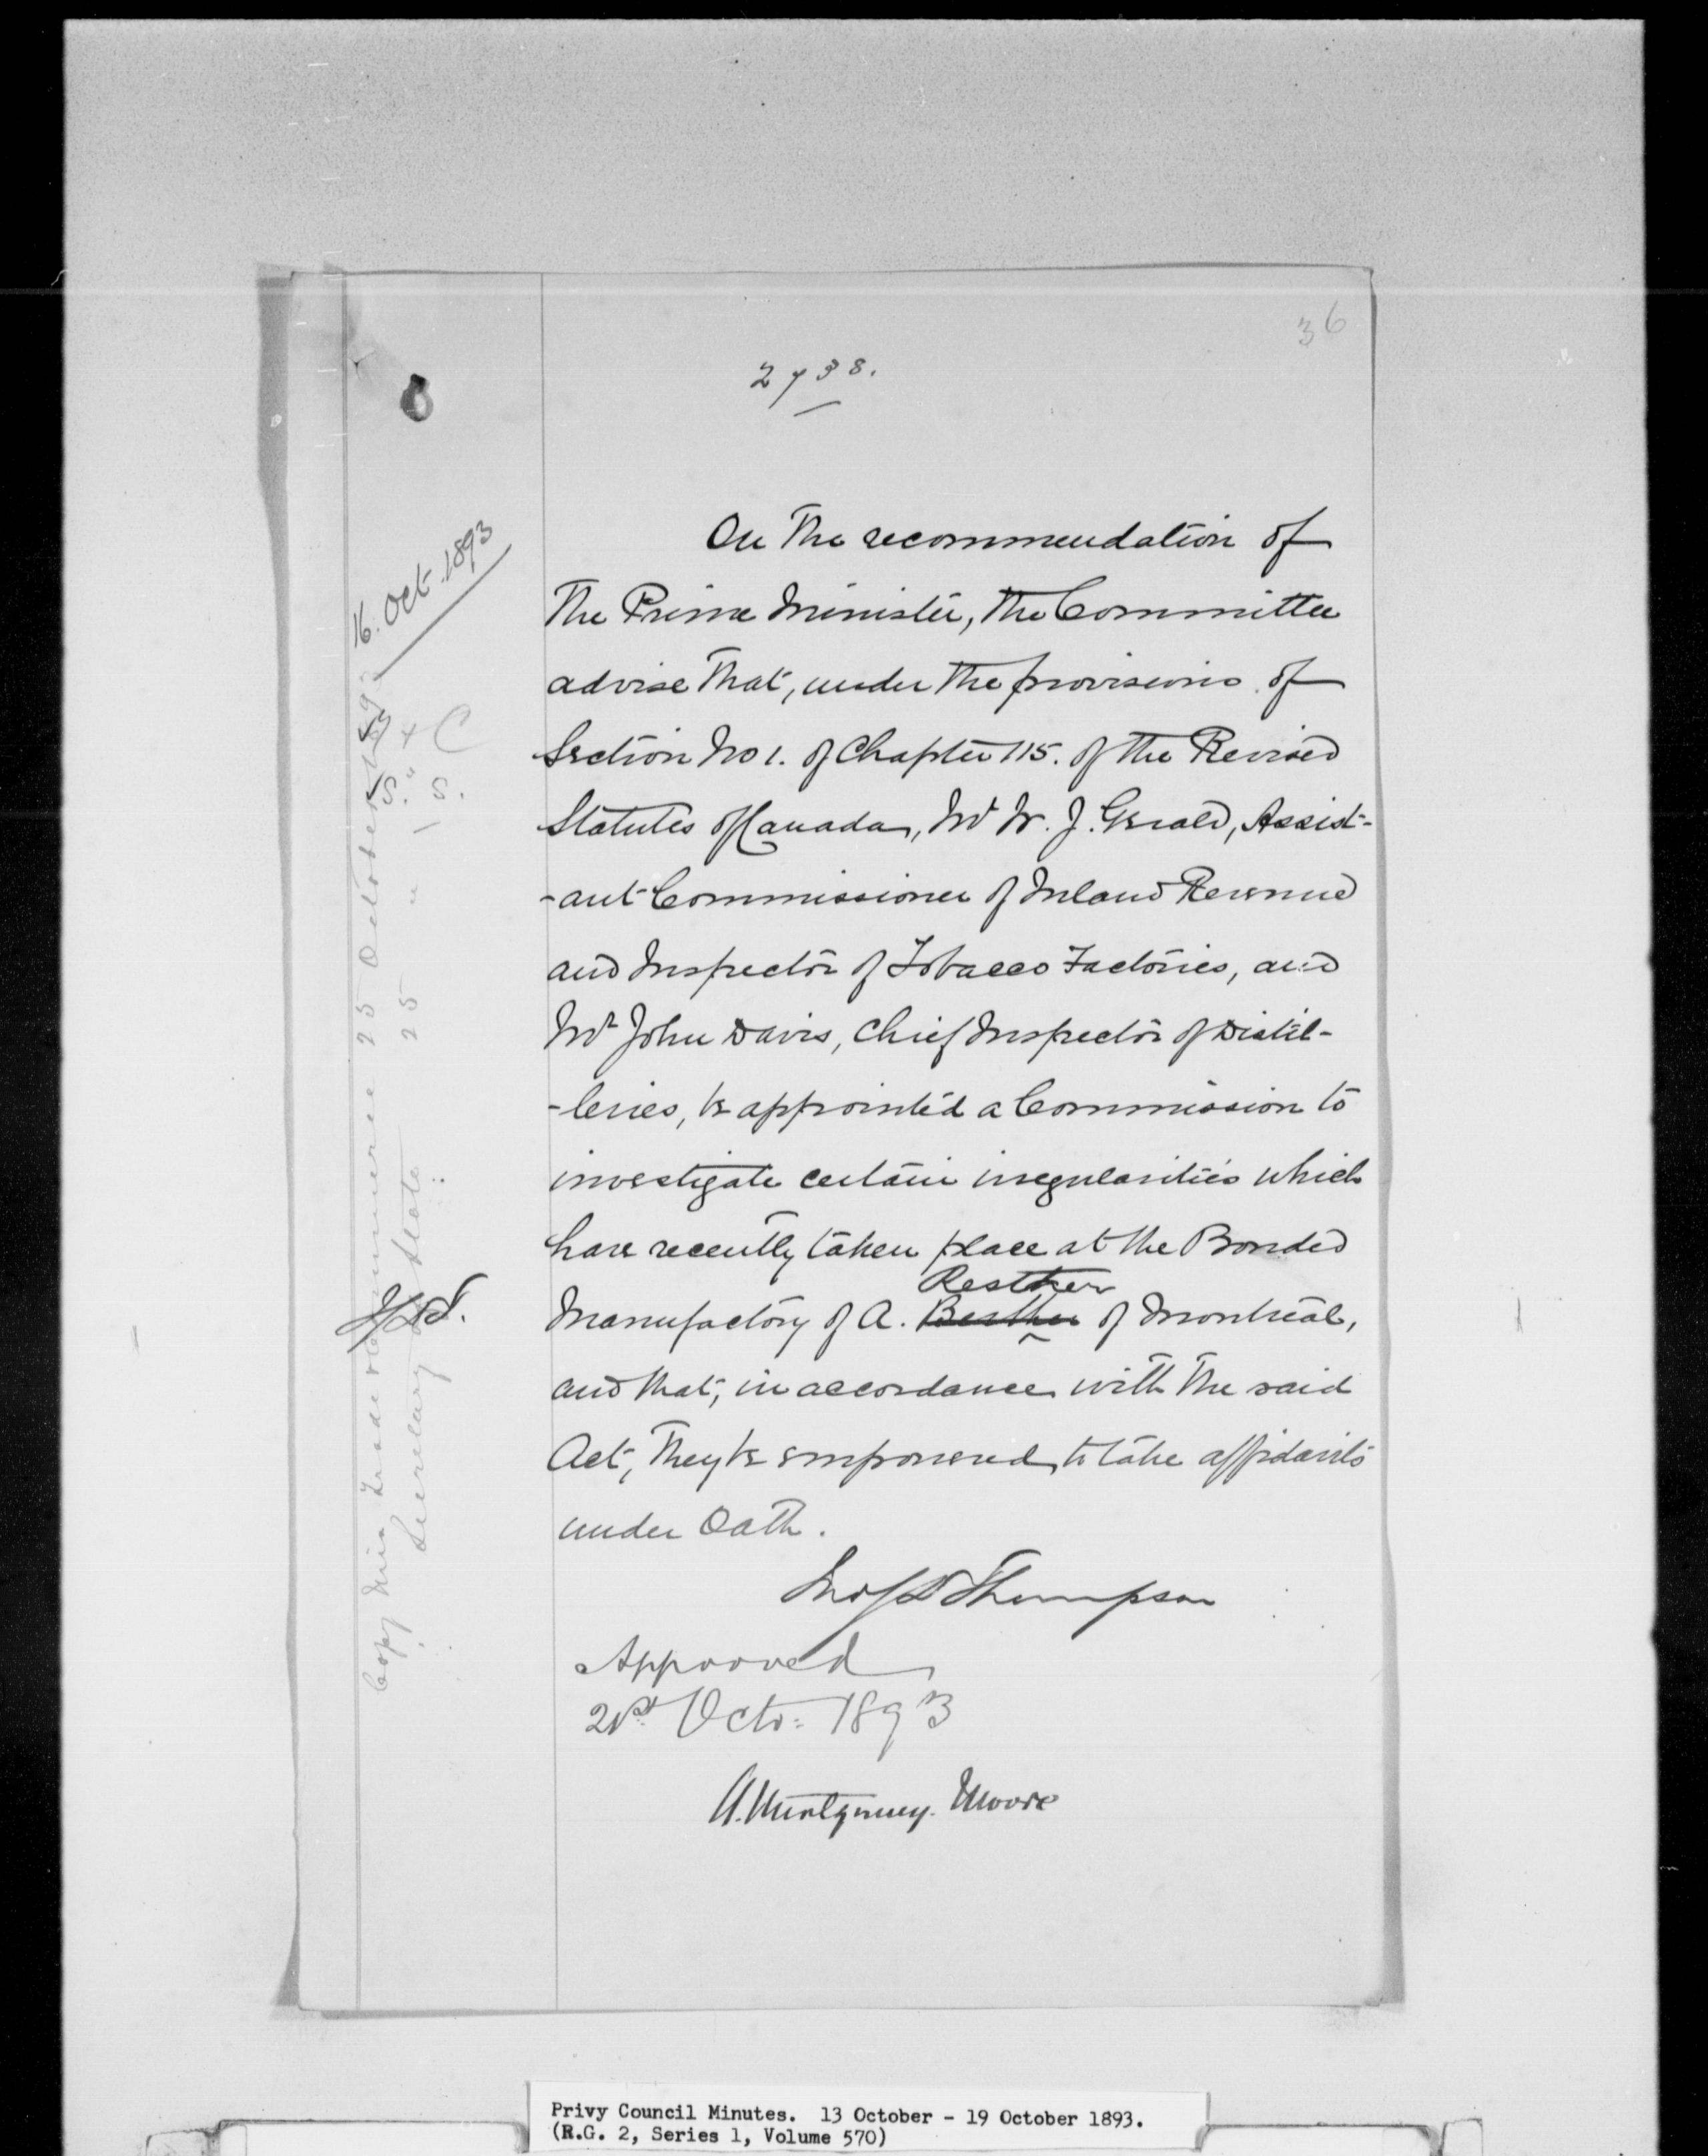 36
2738.
16. Oct. 1893
On the recommendation of
the Prime Minister, the Committee
advise that, under the provisions of
Section No 1. of Chapter 115. of the Revised
Statutes of Canada, Mr W. J. Gerald, Assist-
-ant Commissioner of Inland Revenue
and Inspector of Tobacco Factories, and
Mr John Davis, Chief Inspector of Distil-
-leries, be appointed a Commission to
investigate certain irregularities which
have recently taken place at the Bonded
Resther
Manufactory of A. of Montreal,
and that, in accordance with the said
Act, they be empowered to take affidavits
under Oath.
Jno S D Thompson
Approved
21st Octo: 1893
A. Montgomery. Moore
J.S.D.T.
Copy Min Trade & Commerce 25 October 1893
Secretary State 25 "
Privy Council Minutes. 13 October - 19 October 1893.
(R.G. 2, Series 1, Volume 570)